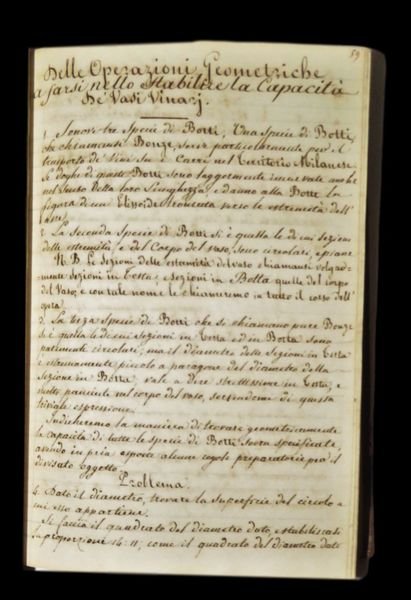 59
Delle Operazioni Geometriche
a farsi nello Stabilire la Capacità
de' Vasi Vinarj.
1. Sonovi tre Specie di Botti, Una Specie di Botti,
che chiamansi Bonze, serve particolarmente per il
trasporto de' Vini su i Carri nel territorio Milanese.
Le doghe di queste Botti sono leggermente incurvate anche
nel senso della loro lunghezza, e danno alla Botte la
figura di un Elissoide troncata verso le estremità dell'
asse.
2. La Seconda Specie di Botti si è quella le di cui sezioni
delle estremità, e del Corpo del vaso, sono circolari, e piane
N. B. Le Sezioni delle estremità del vaso chiamansi volgar-
mente sezioni in Testa, e Sezioni in Botta quelle del corpo
del Vaso, e con tale nome le chiameremo in tutto il corso dell'
opera.
3. La terza Specie di Botti che si chiamano pure Bonze
si è quella le di cui Sezioni in Testa ed in Botta sono
parimenti circolari, ma il diametro delle Sezioni in Testa
è estremamente piccolo a paragone del diametro della
Sezione in Botta, vale a dire strettissime in Testa, e
molto panciute nel corpo del vaso, servendomi di questa
triviale espressione.
Indicheremo la maniera di trovare geometricamente
la capacità di tutte le specie di Botti sovra specificate,
avendo in pria esposte alcune regole preparatorie per il
divisato oggetto.
Problema.
4. Dato il diametro, trovare la Superficie del circolo a
cui esso appartiene.
Si faccia il quadrato del diametro dato, e stabiliscasi
la proporzione 14: 11; come il quadrato del diametro dato